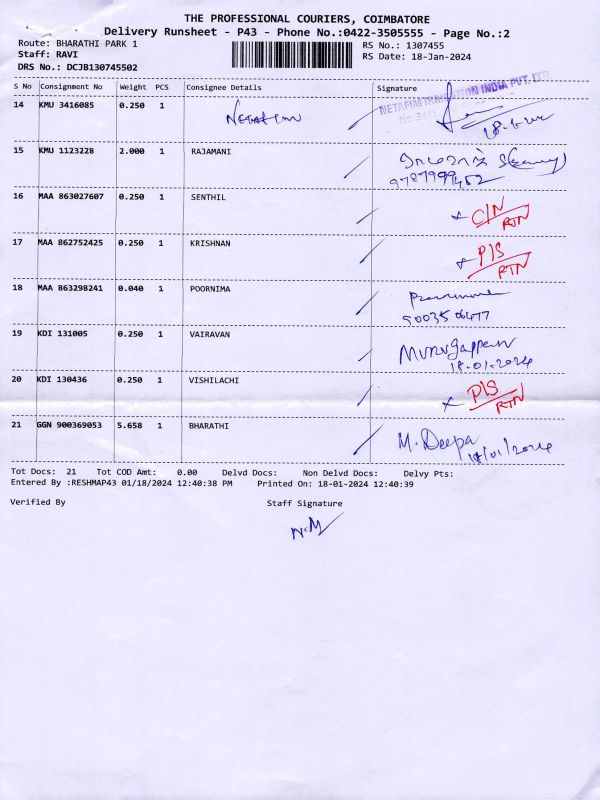 THE PROFESSIONAL COURIERS, COIMBATORE
Delivery Runsheet - P43 - Phone No.:0422-3505555 - Page No.:2
Route: BHARATHI PARK 1
RS No.: 1307455
Staff: RAVI
RS Date: 18-Jan-2024
DRS No.: DCJB130745502
S No Consignment No Weight PCS Consignee Details Signature
NETAFIM IRRIGATION INDIA PVT. LTD.
14 KMU 3416085 0.250 1
15 KMU 1123228 2.000 1 RAJAMANI
9787999452
16 MAA 863027607 0.250 1 SENTHIL
C/N
RTN
17 MAA 862752425 0.250 1 KRISHNAN
P/S
RTN
18 MAA 863298241 0.040 1 POORNIMA
9003506477
19 KDI 131005 0.250 1 VAIRAVAN
Murugappan
18.01.2024
20 KDI 130436 0.250 1 VISHILACHI
P/S
RTN
21 GGN 900369053 5.658 1 BHARATHI
M. Deepa
18/01/2024
Tot Docs: 21 Tot COD Amt: 0.00 Delvd Docs: Non Delvd Docs: Delvy Pts:
Entered By :RESHMAP43 01/18/2024 12:40:38 PM Printed On: 18-01-2024 12:40:39
Verified By Staff Signature